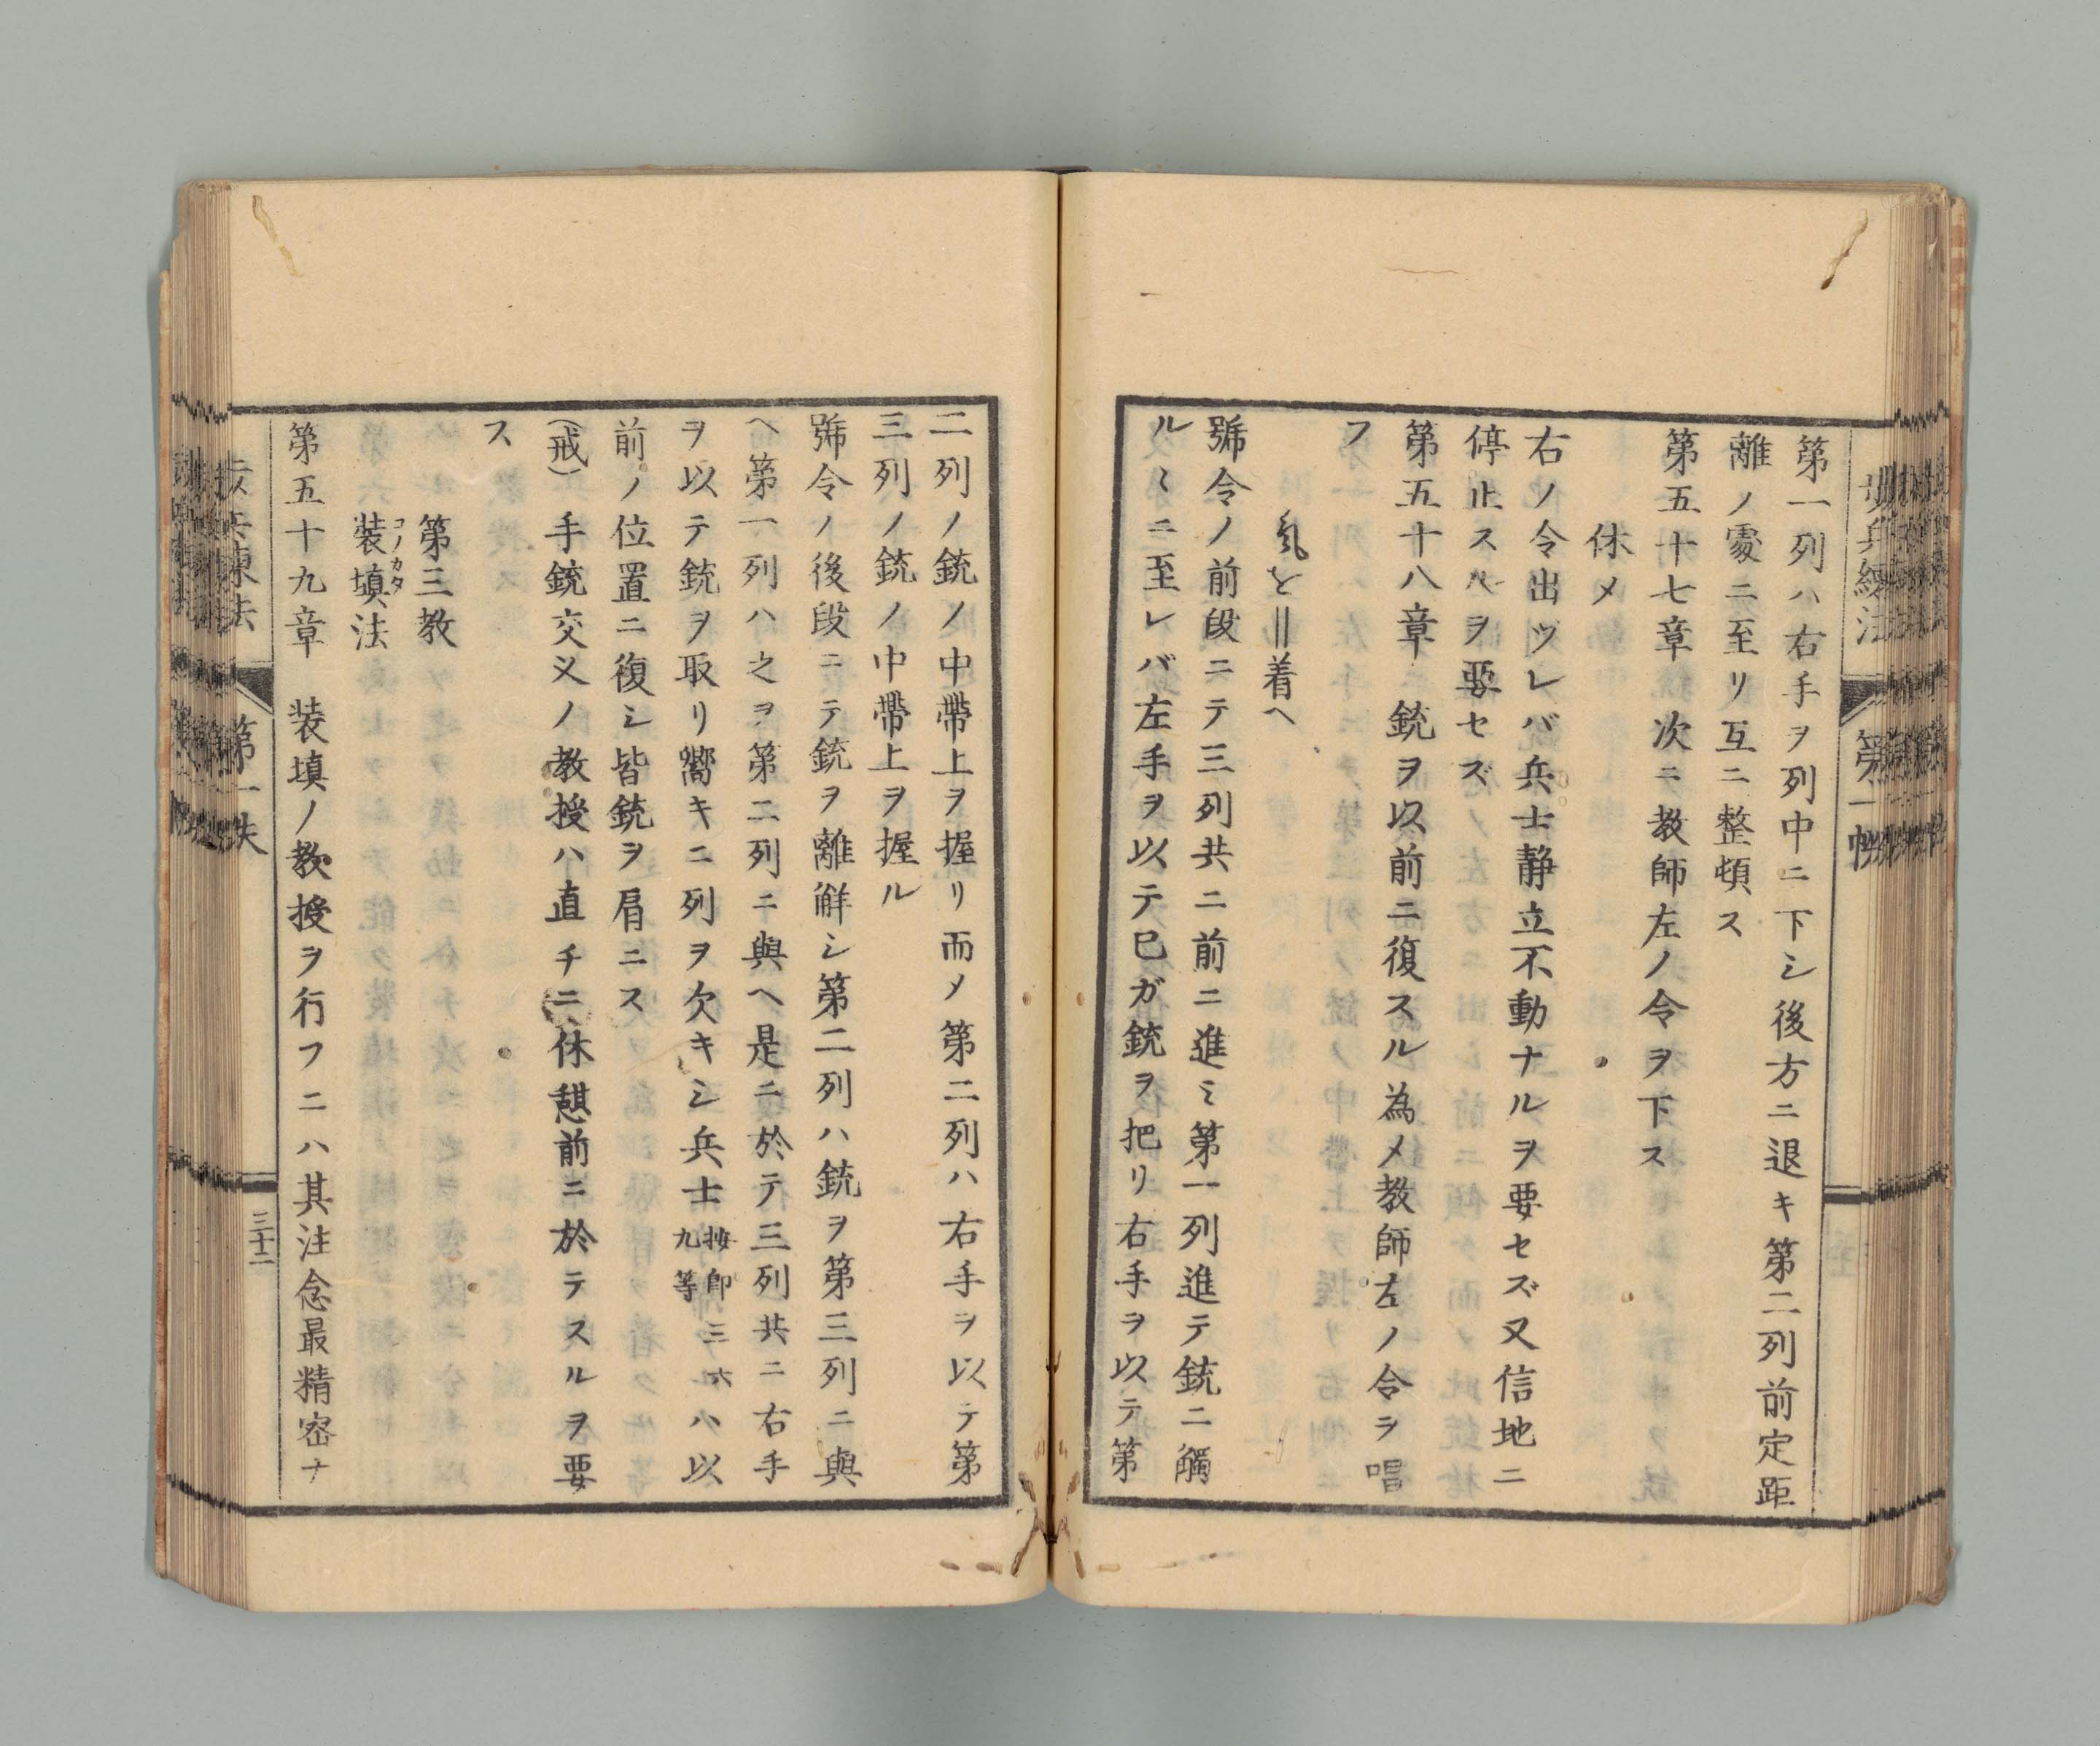 第一列ハ右手ヲ列中ニ下シ後方ニ退キ第二列前定距
離ノ處ニ至リ互ニ整頓ス
第五十七章 次ニ教師左ノ令ヲ下ス
休メ
右ノ令出ヅレバ兵士静立不動ナルヲ要セズ又信地ニ
停止スルヲ要セズ
第五十八章 銃ヲ以前ニ復スル為メ教師左ノ令ヲ唱
フ
氣を‖着へ
號令ノ前段ニテ三列共ニ前ニ進ミ第一列進テ銃ニ觸
ルヽニ至レバ左手ヲ以テ已ガ銃ヲ把リ右手ヲ以テ第
二列ノ銃ノ中帶上ヲ握リ而メ第二列ハ右手ヲ以テ第
三列ノ銃ノ中帶上ヲ握ル
號令ノ後段ニテ銃ヲ離觧シ第二列ハ銃ヲ第三列ニ與
ヘ第一列ハ之ヲ第二列ニ與ヘ是ニ於テ三列共ニ右手
ヲ以テ銃ヲ取リ嚮キニ列ヲ欠キシ兵士按即三六九等ハ以
前ノ位置ニ復シ皆銃ヲ肩ニス
(戒)手銃交叉ノ教授ハ直チニ休憩前ニ於テスルヲ要
ス
第三教
装填法コノカタ
第五十九章 装填ノ教授ヲ行フニハ其注念最精密ナ
歩兵練法 第一帙 三十二